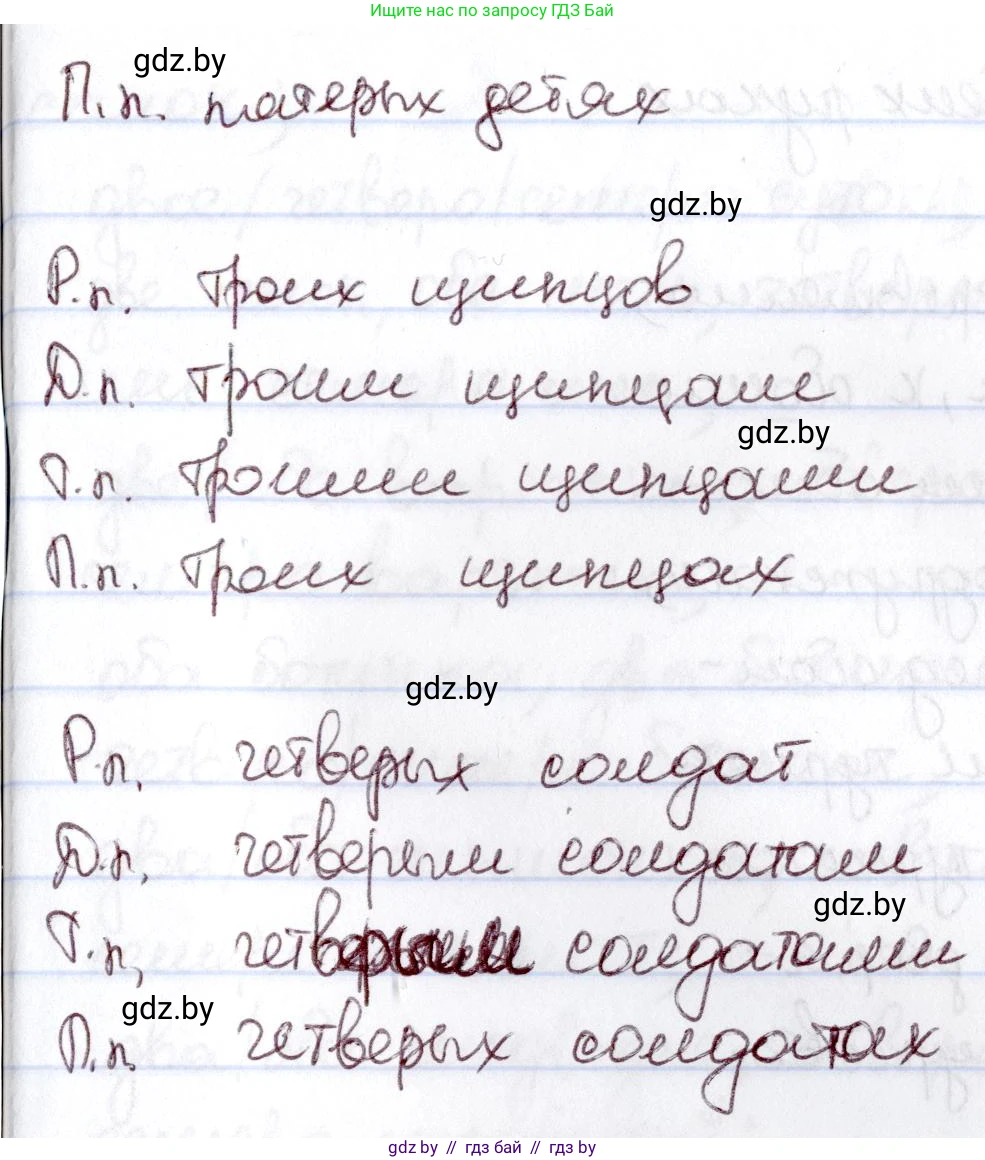 Ищите нас по запросу ГДЗ Бай
gdz.by
П.п. пятерых детях
gdz.by
Р.п. троих щипцов
Д.п. троим щипцам
gdz.by
Т.п. троими щипцами
П.п. троих щипцах
gdz.by
Р.п. четверых солдат
Д.п. четверым солдатам
gdz.by
Т.п. солдатами
gdz.by
П.п. четверых солдатах
gdz.by // гдз бай // гдз by